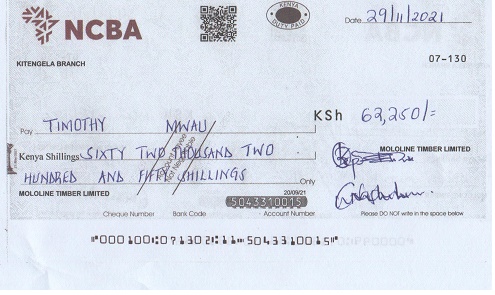 NCBA
KENYA
DUTY PAID
Date 29/11/2021
KITENGELA BRANCH
07-130
Pay TIMOTHY MWAU
KSh 62,250/=
Account Payee
Not Negotiable
Kenya Shillings SIXTY TWO THOUSAND TWO
HUNDRED AND FIFTY SHILLINGS Only
MOLOLINE TIMBER LIMITED
MOLOLINE TIMBER LIMITED
20/09/21
5043310015
Cheque Number Bank Code Account Number
Please DO NOT write in the space below
"000100:07130211:5043310015"